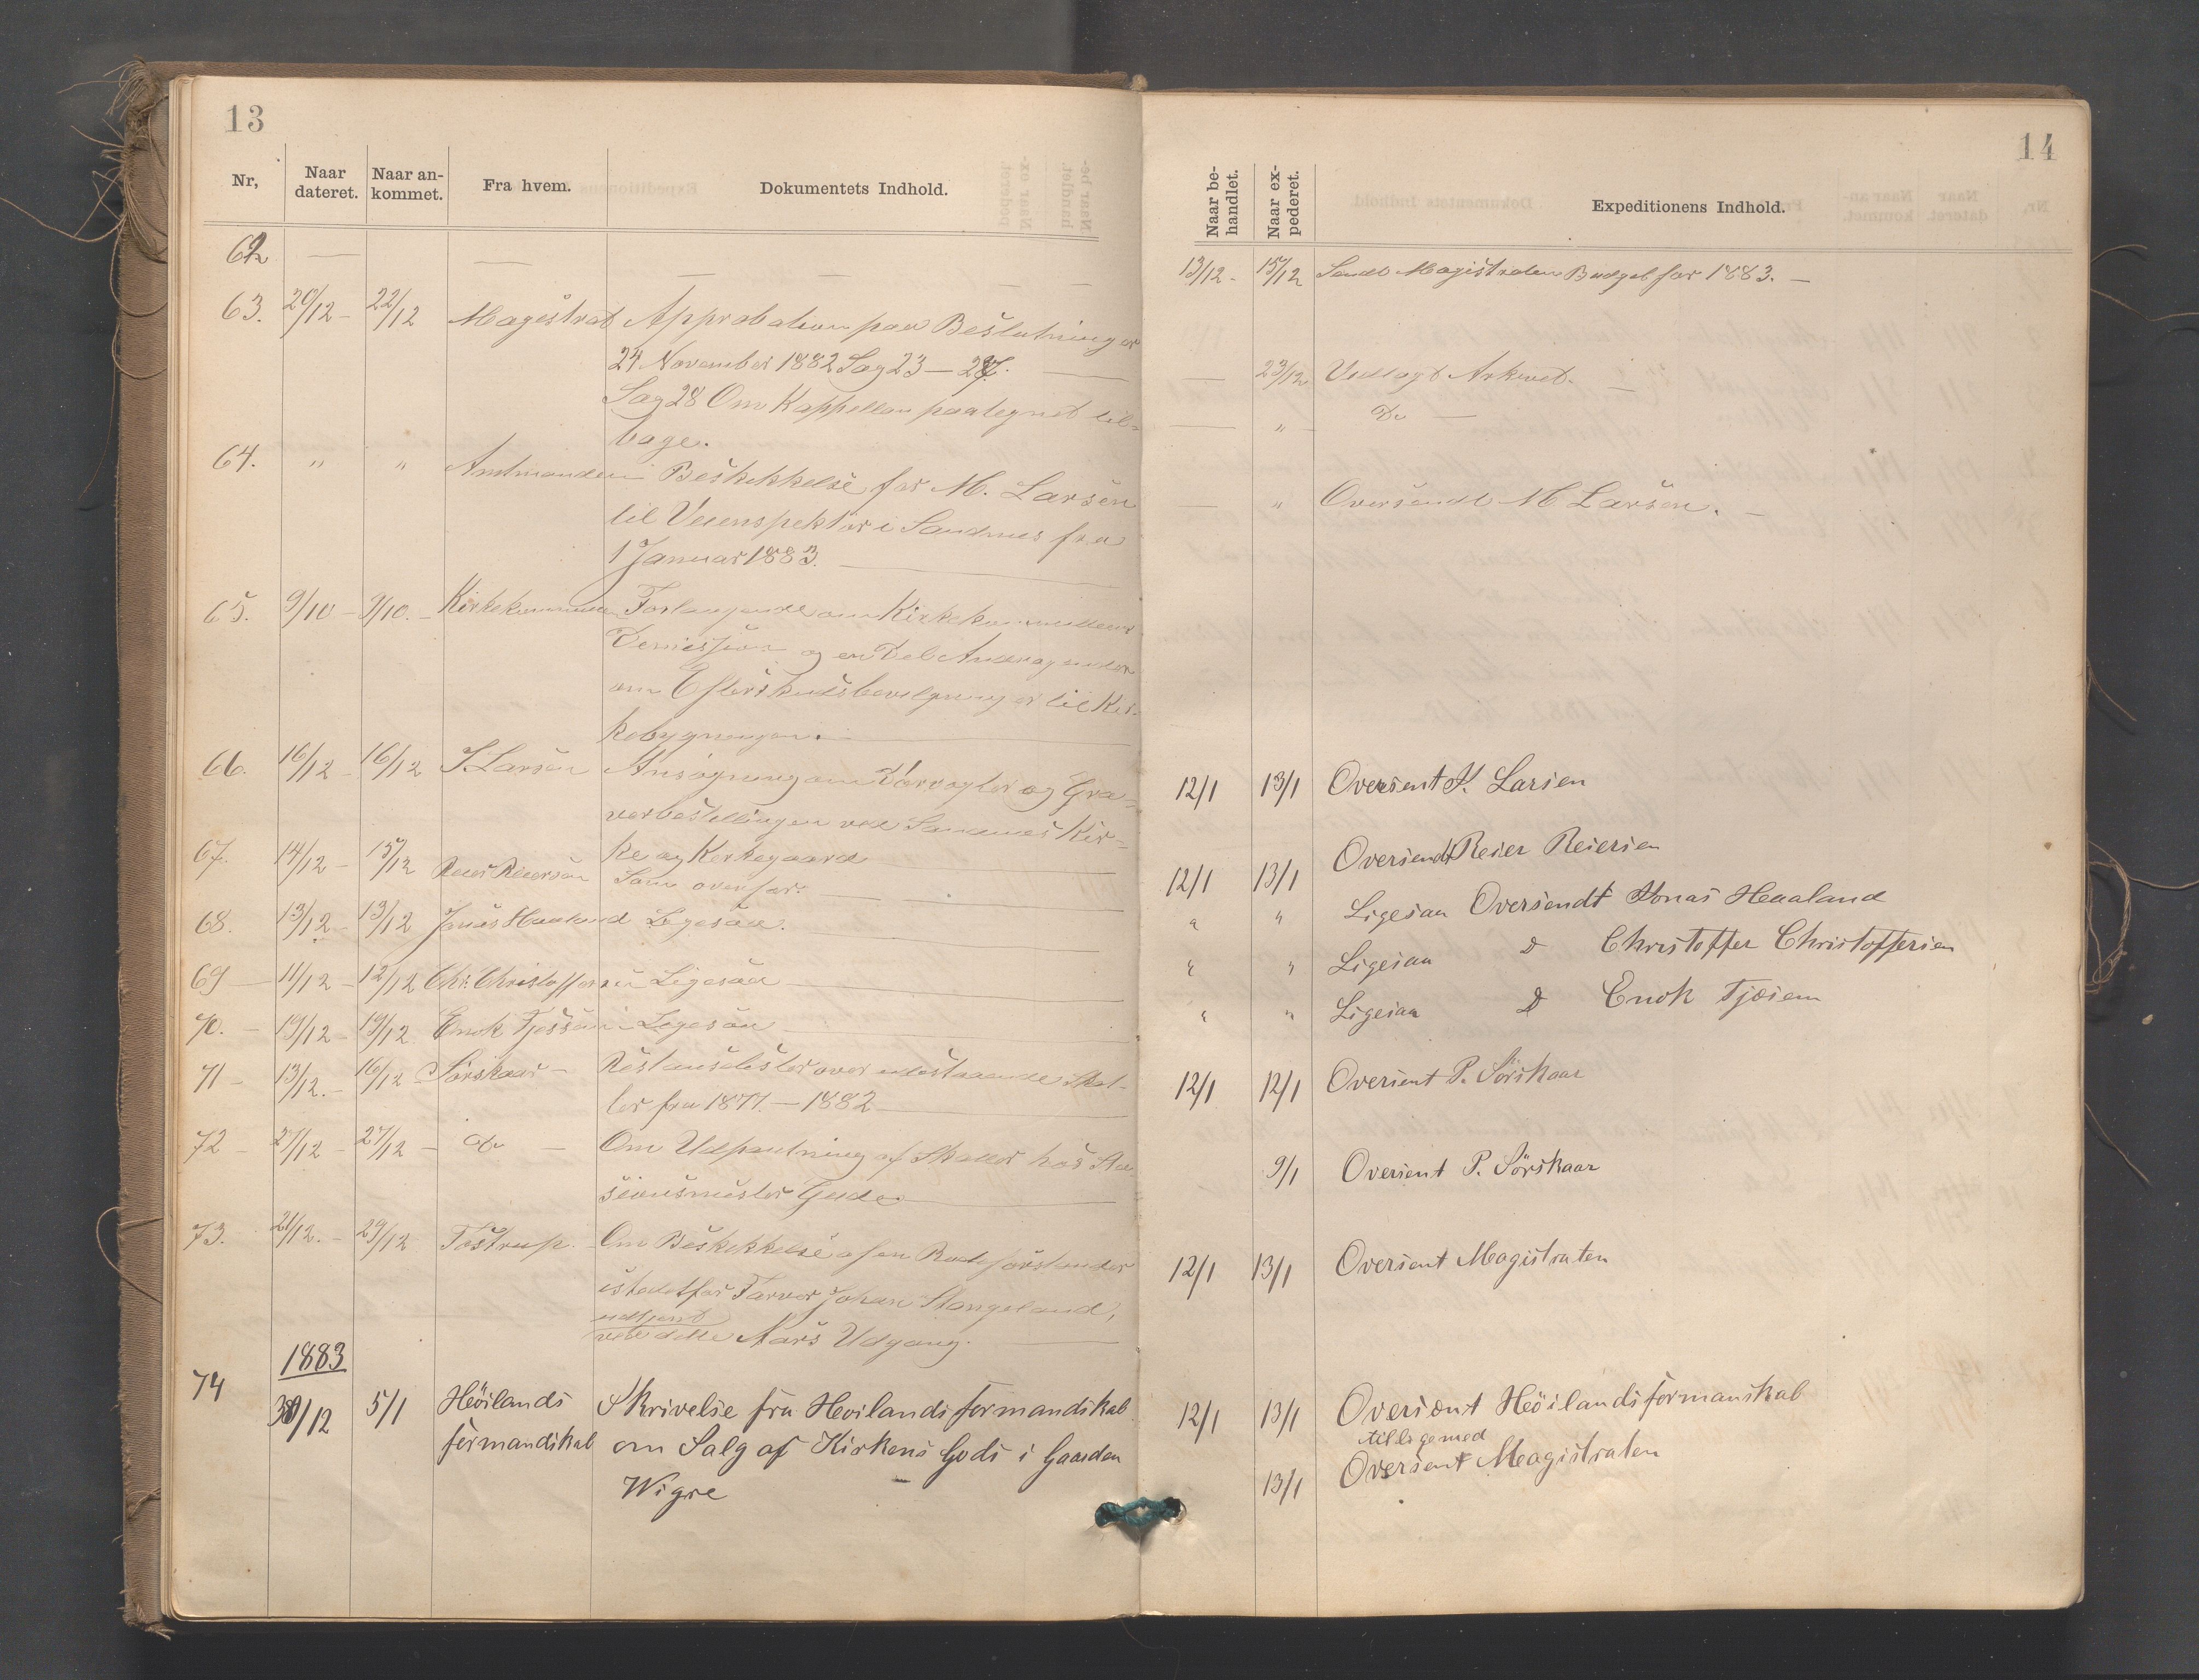 13
Nr, Naar dateret. Naar ankommet. Fra hvem. Dokumentets Indhold.
62 — — — —
63. 20/12 – 22/12 Magistrat Approbation paa Beslutninger
24 November 1882 Sag 23 — 27.
Sag 28 Om Kappellan paategnet til-
bage.
64. " " Amtmanden Beskikkelse for M. Larsen
til Veiinspektør i Sandnes fra
1 Januar 1883.
65. 9/10 – 9/10. – Forlangende om Kirkekommitteens
Demission og en Del Andragender
om Efterskudsbevilgninger til Kir-
kebygningen.
66. 16/12 – 16/12 Larsen Ansøgning om Taarvogter og Gra-
verbestillingen ved Sandnes Kir-
ke og Kirkegaard
67. 14/12 – 15/12 Reier Reiersen Som ovenfor.
68. 13/12 – 13/12 Jonas Haaland Ligesaa.
69 – 11/12 – 12/12 Chr. Christoffersen Ligesaa
70. – 19/12 – 19/12 Enok Tjossem Ligesaa
71 – 13/12. – 16/12 Sörskaar – Restanselister over udestaaende Skat-
ter fra 1877. — 1882
72 – 27/12 – 27/12 – do – Om Udpantning af Skatter hos Sta-
sionsmester Gude
73. 21/12. – 29/12 Tostrup. Om Beskikkelse af en Rodeforstander
istedetfor Farver Johan Stangeland,
udtjent
ved dette Aars Udgang.
1883
74 30/12 5/1 Höilands Skrivelse fra Hoilands formandskab
formandskab om Salg af Kirkens Gods i Gaarden
Wigre
14
Naar behandlet. Naar expederet. Expeditionens Indhold.
13/12 – 15/12 Sendt Magistraten Budget for 1883. —
— 23/12 Vedlagt Arkivet. —
— " Do —
— " Oversendt M Larsen. —
12/1 13/1 Oversent Larsen
12/1 13/1 Oversendt Reier Reiersen
" " Ligesaa Oversendt Jonas Heaaland
" " Ligesaa D Christoffer Christoffersen
" " Ligesaa D Enok Tjøsem
12/1 12/1 Oversent P. Sörskaar
9/1 Oversent P. Sörskaar
12/1 13/1 Oversent Magistraten
12/1 13/1 Oversent Höilands formanskab
tilligemed
13/1 Oversent Magistraten